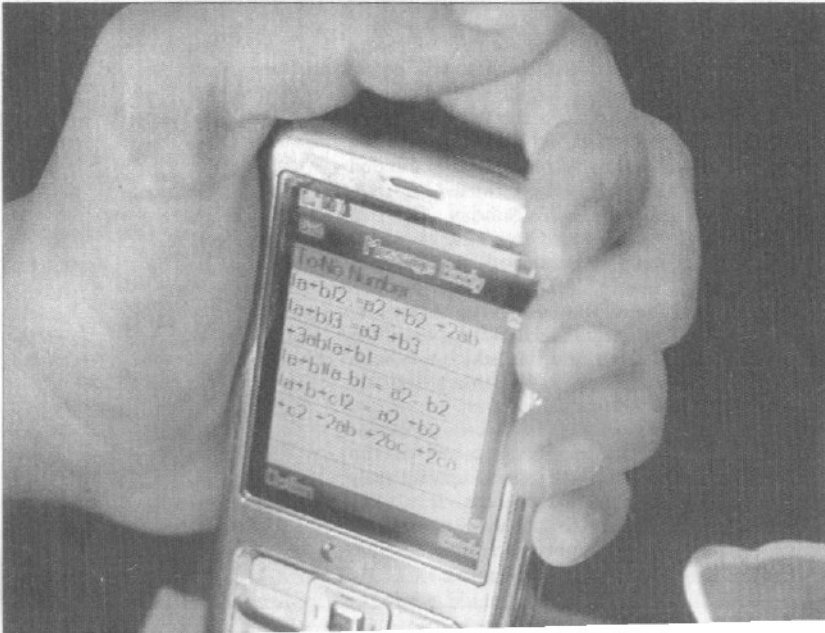 Message Body
To:No Number
(a+b)2 =a2 +b2 +2ab
(a+b)3 =a3 +b3
+3ab(a+b)
(a+b)(a-b) = a2 - b2
(a+b+c)2 = a2 +b2
+c2 +2ab +2bc +2ca
Option